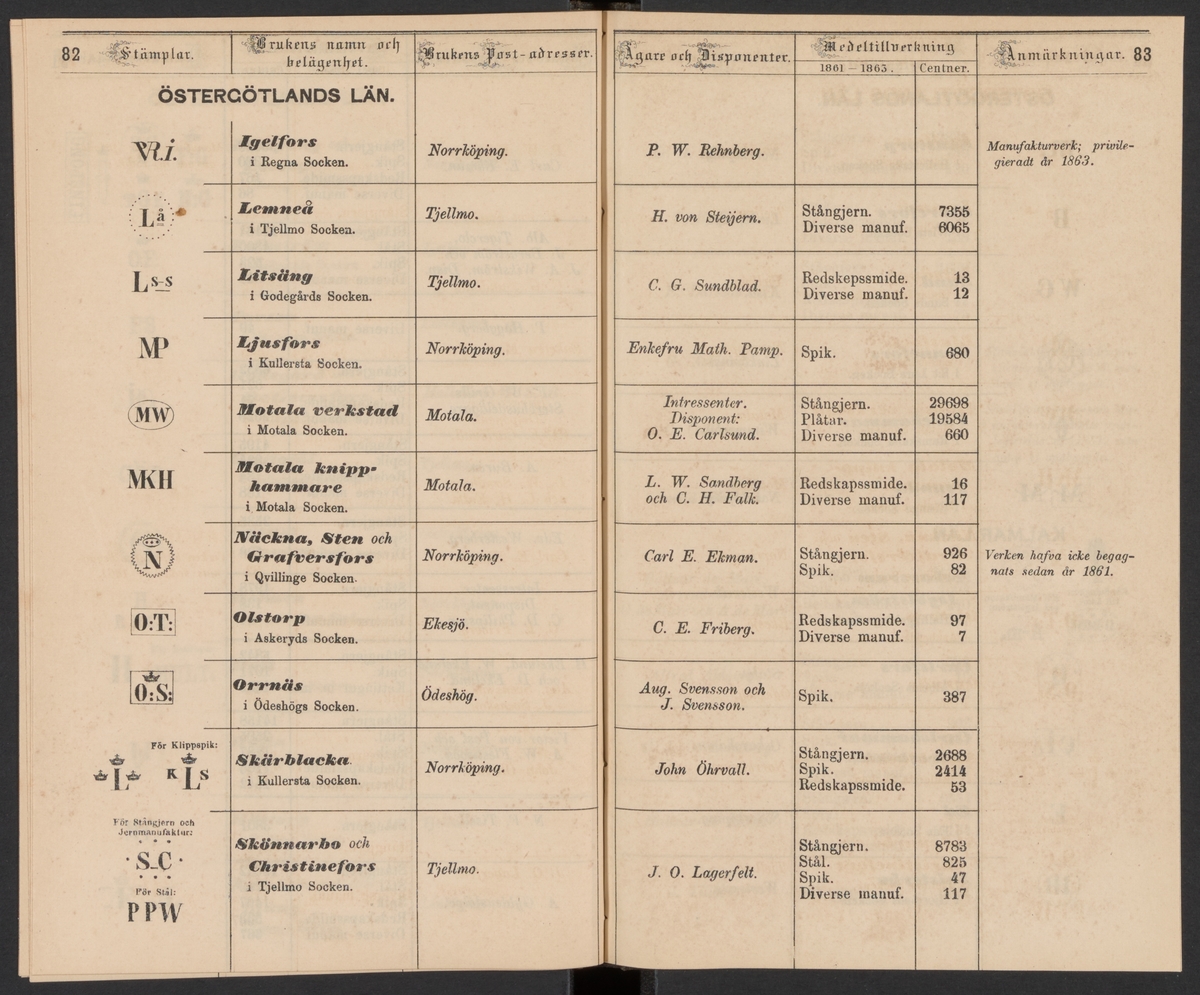 82
Stämplar.
Brukens namn och
belägenhet.
Brukens Post-adresser.
Ägare och Disponenter.
Medeltillverkning
1861 – 1863.
Centner.
Anmärkningar.
83
ÖSTERGÖTLANDS LÄN.
VR.i.
Igelfors
i Regna Socken.
Norrköping.
P. W. Rehnberg.
Manufakturverk; privile-
gieradt år 1863.
Lå
Lemneå
i Tjellmo Socken.
Tjellmo.
H. von Steijern.
Stångjern. 7355
Diverse manuf. 6065
Ls-s
Litsäng
i Godegårds Socken.
Tjellmo.
C. G. Sundblad.
Redskepssmide. 13
Diverse manuf. 12
MP
Ljusfors
i Kullersta Socken.
Norrköping.
Enkefru Math. Pamp.
Spik. 680
MW
Motala verkstad
i Motala Socken.
Motala.
Intressenter.
Disponent:
O. E. Carlsund.
Stångjern. 29698
Plåtar. 19584
Diverse manuf. 660
MKH
Motala knipp-
hammare
i Motala Socken.
Motala.
L. W. Sandberg
och C. H. Falk.
Redskapssmide. 16
Diverse manuf. 117
N
Näckna, Sten och
Grafversfors
i Qvillinge Socken.
Norrköping.
Carl E. Ekman.
Stångjern. 926
Spik. 82
Verken hafva icke begag-
nats sedan år 1861.
O:T:
Olstorp
i Askeryds Socken.
Ekesjö.
C. E. Friberg.
Redskapssmide. 97
Diverse manuf. 7
O:S:
Orrnäs
i Ödeshögs Socken.
Ödeshög.
Aug. Svensson och
J. Svensson.
Spik. 387
För Klippspik:
L
K L S
Skärblacka.
i Kullersta Socken.
Norrköping.
John Öhrvall.
Stångjern. 2688
Spik. 2414
Redskapssmide. 53
För Stångjern och
Jernmanufaktur:
S-C
För Stål:
PPW
Skönnarbo och
Christinefors
i Tjellmo Socken.
Tjellmo.
J. O. Lagerfelt.
Stångjern. 8783
Stål. 825
Spik. 47
Diverse manuf. 117